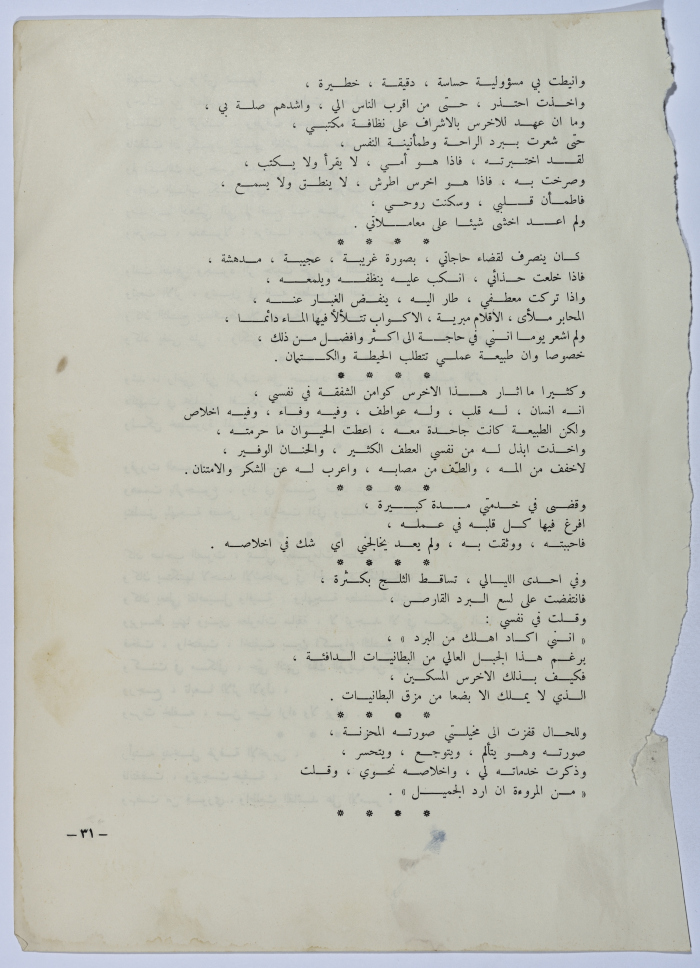 وانيطت بي مسؤولية حساسة ، دقيقة ، خطيرة ،
واخذت احتذر ، حتى من اقرب الناس الي ، واشدهم صلة بي ،
وما ان عهد للاخرس بالاشراف على نظافة مكتبي ،
حتى شعرت ببرد الراحة وطمأنينة النفس ،
لقد اختبرته ، فاذا هو أمي ، لا يقرأ ولا يكتب ،
وصرخت به ، فاذا هو اخرس اطرش ، لا ينطق ولا يسمع ،
فاطمأن قلبي ، وسكنت روحي ،
ولم اعد اخشى شيئا على معاملاتي .
* * * *
كان ينصرف لقضاء حاجاتي ، بصورة غريبة ، عجيبة ، مدهشة ،
فاذا خلعت حذائي ، انكب عليه ينظفه ويلمعه ،
واذا تركت معطفي ، طار اليه ، ينفض الغبار عنه ،
المحابر ملأى ، الاقلام مبرية ، الاكواب تتلألأ فيها الماء دائما ،
ولم اشعر يوما انني في حاجة الى اكثر وافضل من ذلك ،
خصوصا وان طبيعة عملي تتطلب الحيطة والكتمان .
* * * *
وكثيرا ما اثار هذا الاخرس كوامن الشفقة في نفسي ،
انه انسان ، له قلب ، وله عواطف ، وفيه وفاء ، وفيه اخلاص
ولكن الطبيعة كانت جاحدة معه ، اعطت الحيوان ما حرمته ،
واخذت ابذل له من نفسي العطف الكثير ، والحنان الوفير ،
لاخفف من المه ، والطف من مصابه ، واعرب له عن الشكر والامتنان .
* * * *
وقضى في خدمتي مدة كبيرة ،
افرغ فيها كل قلبه في عمله ،
فاحببته ، ووثقت به ، ولم يعد يخالجني اي شك في اخلاصه .
* * * *
وفي احدى الليالي ، تساقط الثلج بكثرة ،
فانتفضت على لسع البرد القارص ،
وقلت في نفسي :
« انني اكاد اهلك من البرد » ،
برغم هذا الجبل العالي من البطانيات الدافئة ،
فكيف بذلك الاخرس المسكين ،
الذي لا يملك الا بضعا من مزق البطانيات .
* * * *
وللحال قفزت الى مخيلتي صورته المحزنة ،
صورته وهو يتألم ، ويتوجع ، ويتحسر ،
وذكرت خدماته لي ، واخلاصه نحوي ، وقلت
« من المروءة ان ارد الجميل » .
* * * *
– ٣١ –